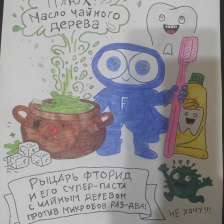 ПЛЮХ
Масло чайного
дерева
F
НЕ ХОЧУ!!!
РЫЦАРЬ ФТОРИД
И ЕГО СУПЕР-ПАСТА
С ЧАЙНЫМ ДЕРЕВОМ
ПРОТИВ МИКРОБОВ РАЗ-ДВА!